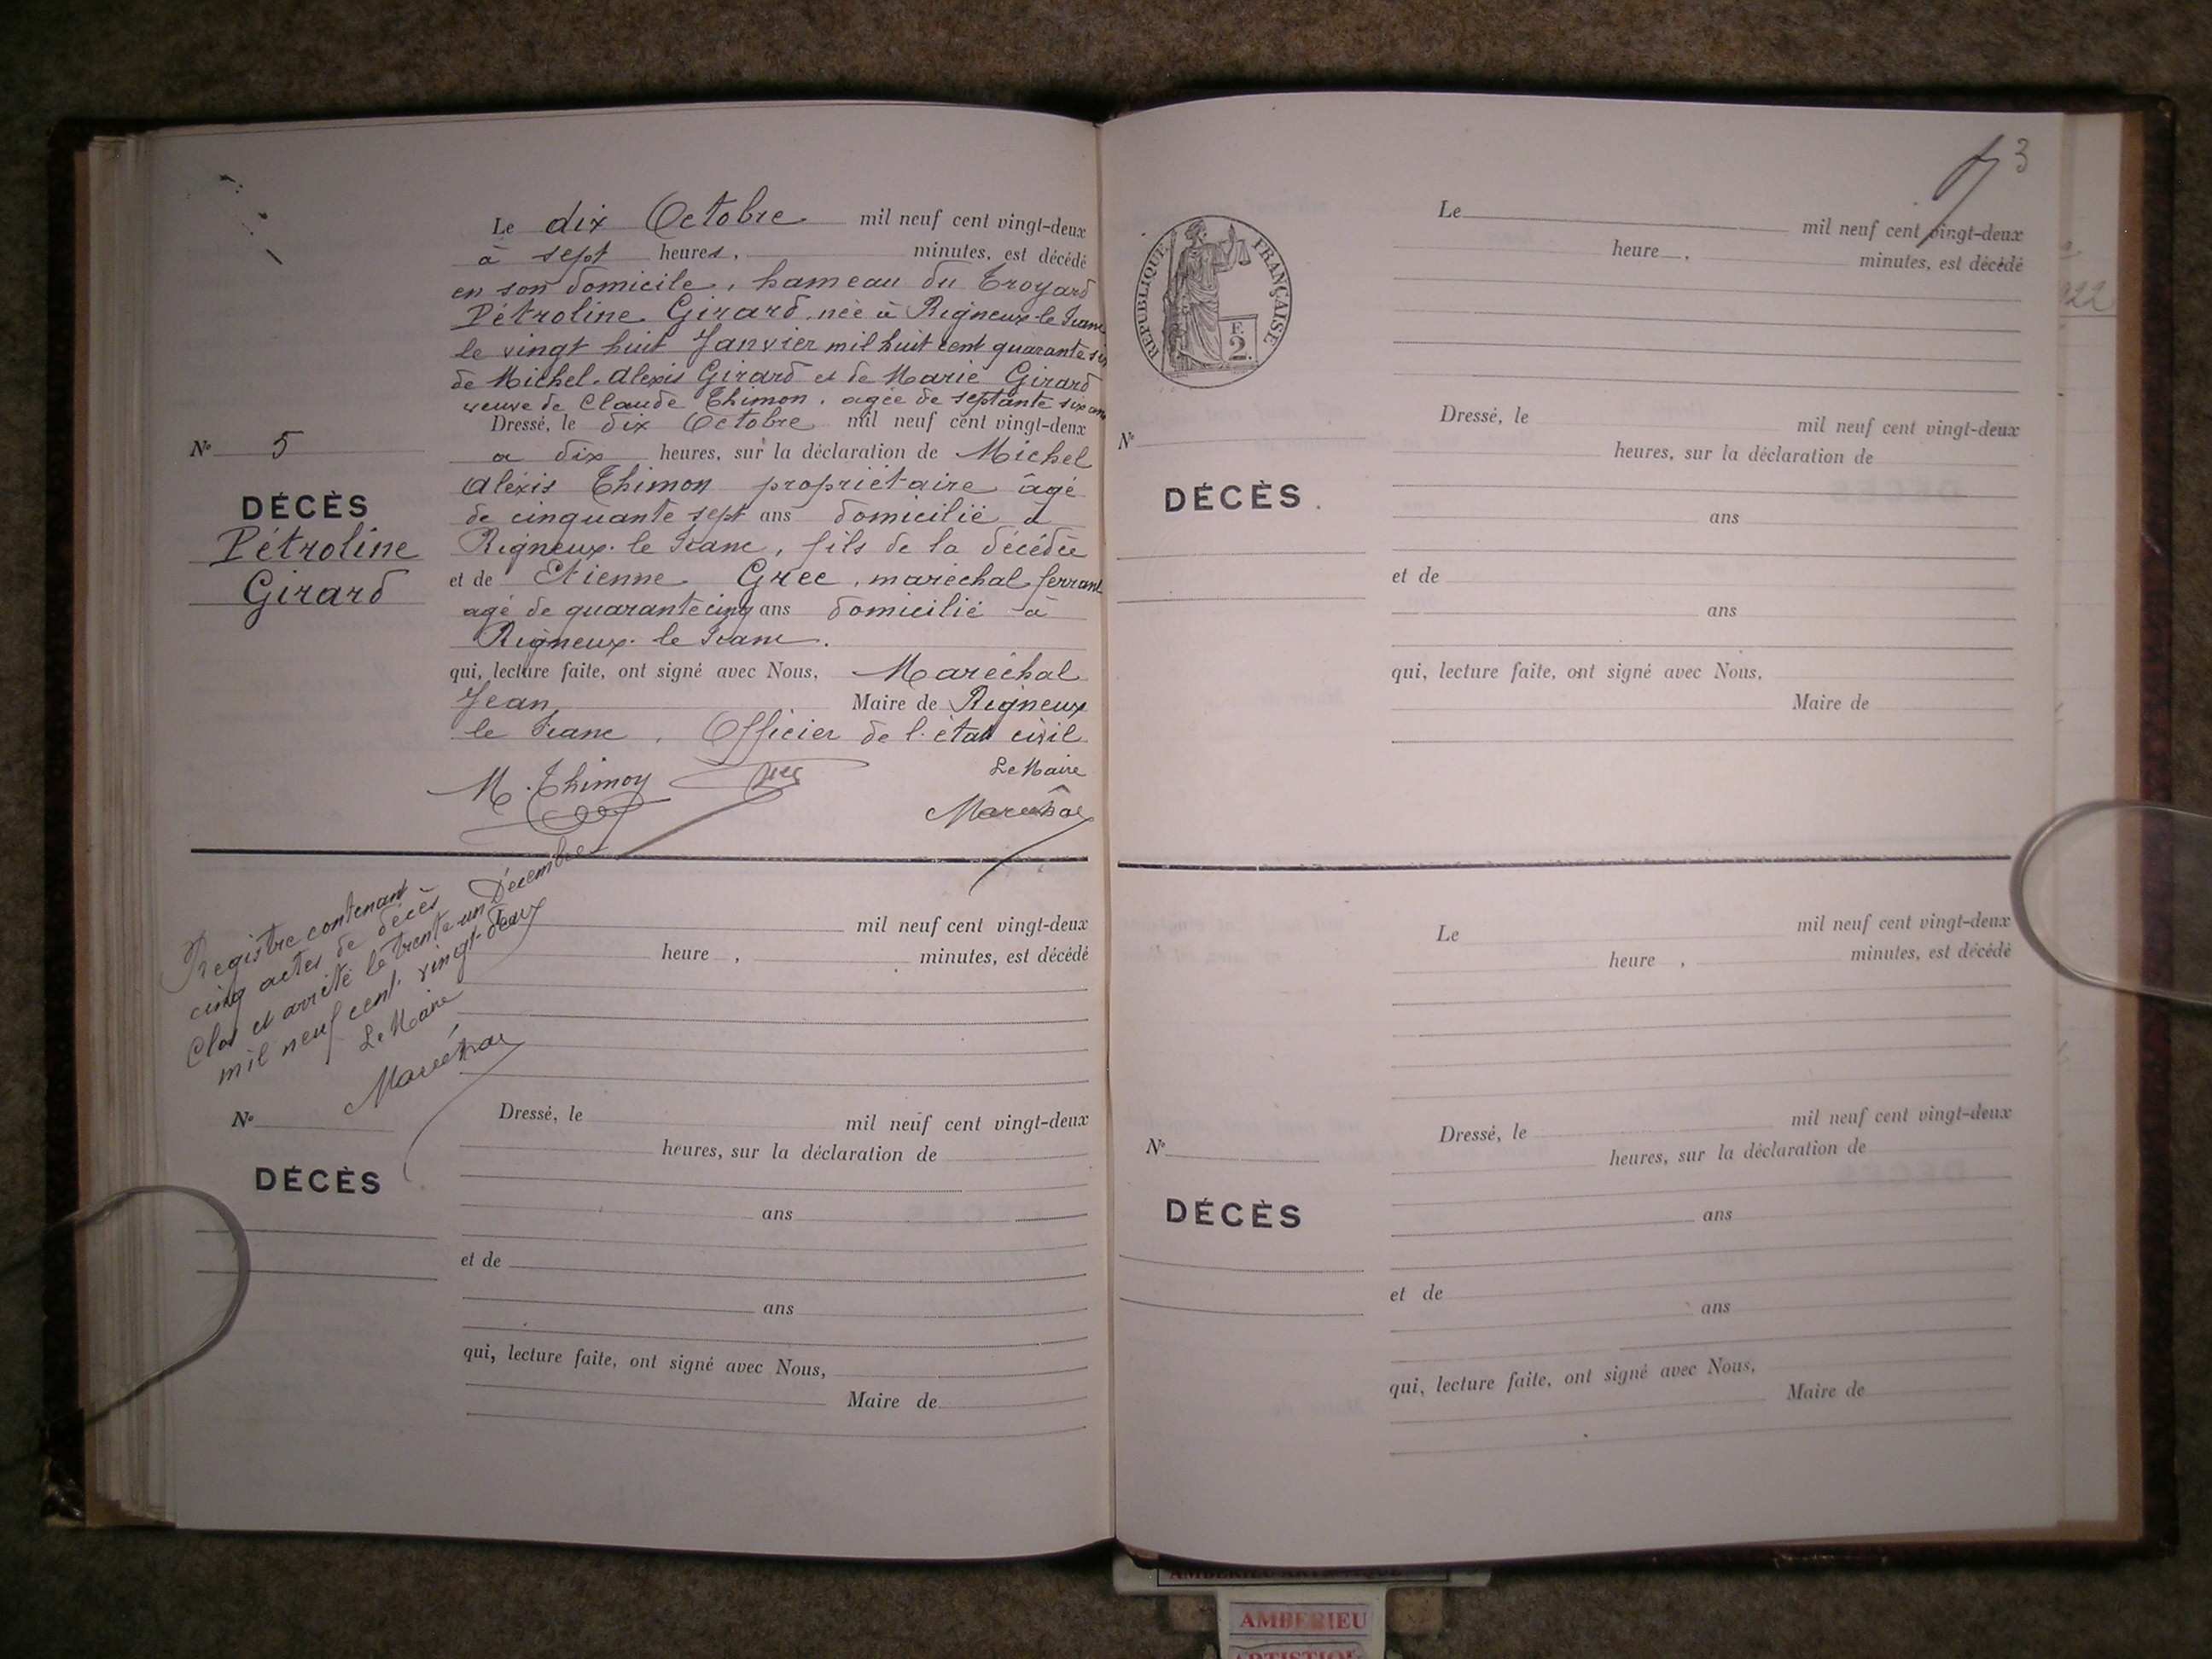 Le dix Octobre mil neuf cent vingt-deux
à sept heures, minutes, est décédé
en son domicile, hameau du Troyard
Pétroline Girard, née à Rigneux-le-Franc
le vingt huit Janvier mil huit cent quarante six
de Michel-Alexis Girard et de Marie Girard
veuve de Claude Thimon, agée de septante six ans
Dressé, le dix Octobre mil neuf cent vingt-deux
a dix heures, sur la déclaration de Michel
Aléxis Thimon propriétaire âgé
de cinquante sept ans domicilié à
Rigneux-le Franc, fils de la décédée
et de Etienne Grec, maréchal ferrant
agé de quarante cinq ans domicilié à
Rigneux-le Franc.
qui, lecture faite, ont signé avec Nous, Maréchal
Jean, Maire de Rigneux
le Franc, Officier de l'état civil
M. Thimon Grec Le Maire
Maréchal
N° 5
DÉCÈS
Pétroline
Girard
Registre contenant
cinq actes de décès
Clos et arrêté le trente-un Décembre
mil neuf cent vingt-deux
Le Maire
Maréchal
mil neuf cent vingt-deux
heure , minutes, est décédé
Dressé, le mil neuf cent vingt-deux
heures, sur la déclaration de
ans
et de
ans
qui, lecture faite, ont signé avec Nous,
Maire de
N°
DÉCÈS
3
RÉPUBLIQUE FRANÇAISE
F.
2.
Le mil neuf cent vingt-deux
heure , minutes, est décédé
Dressé, le mil neuf cent vingt-deux
heures, sur la déclaration de
ans
et de
ans
qui, lecture faite, ont signé avec Nous,
Maire de
N°
DÉCÈS
Le mil neuf cent vingt-deux
heure , minutes, est décédé
Dressé, le mil neuf cent vingt-deux
heures, sur la déclaration de
ans
et de
ans
qui, lecture faite, ont signé avec Nous,
Maire de
N°
DÉCÈS
922
AMBERIEU ARTISTIQUE
AMBERIEU
ARTISTIQUE